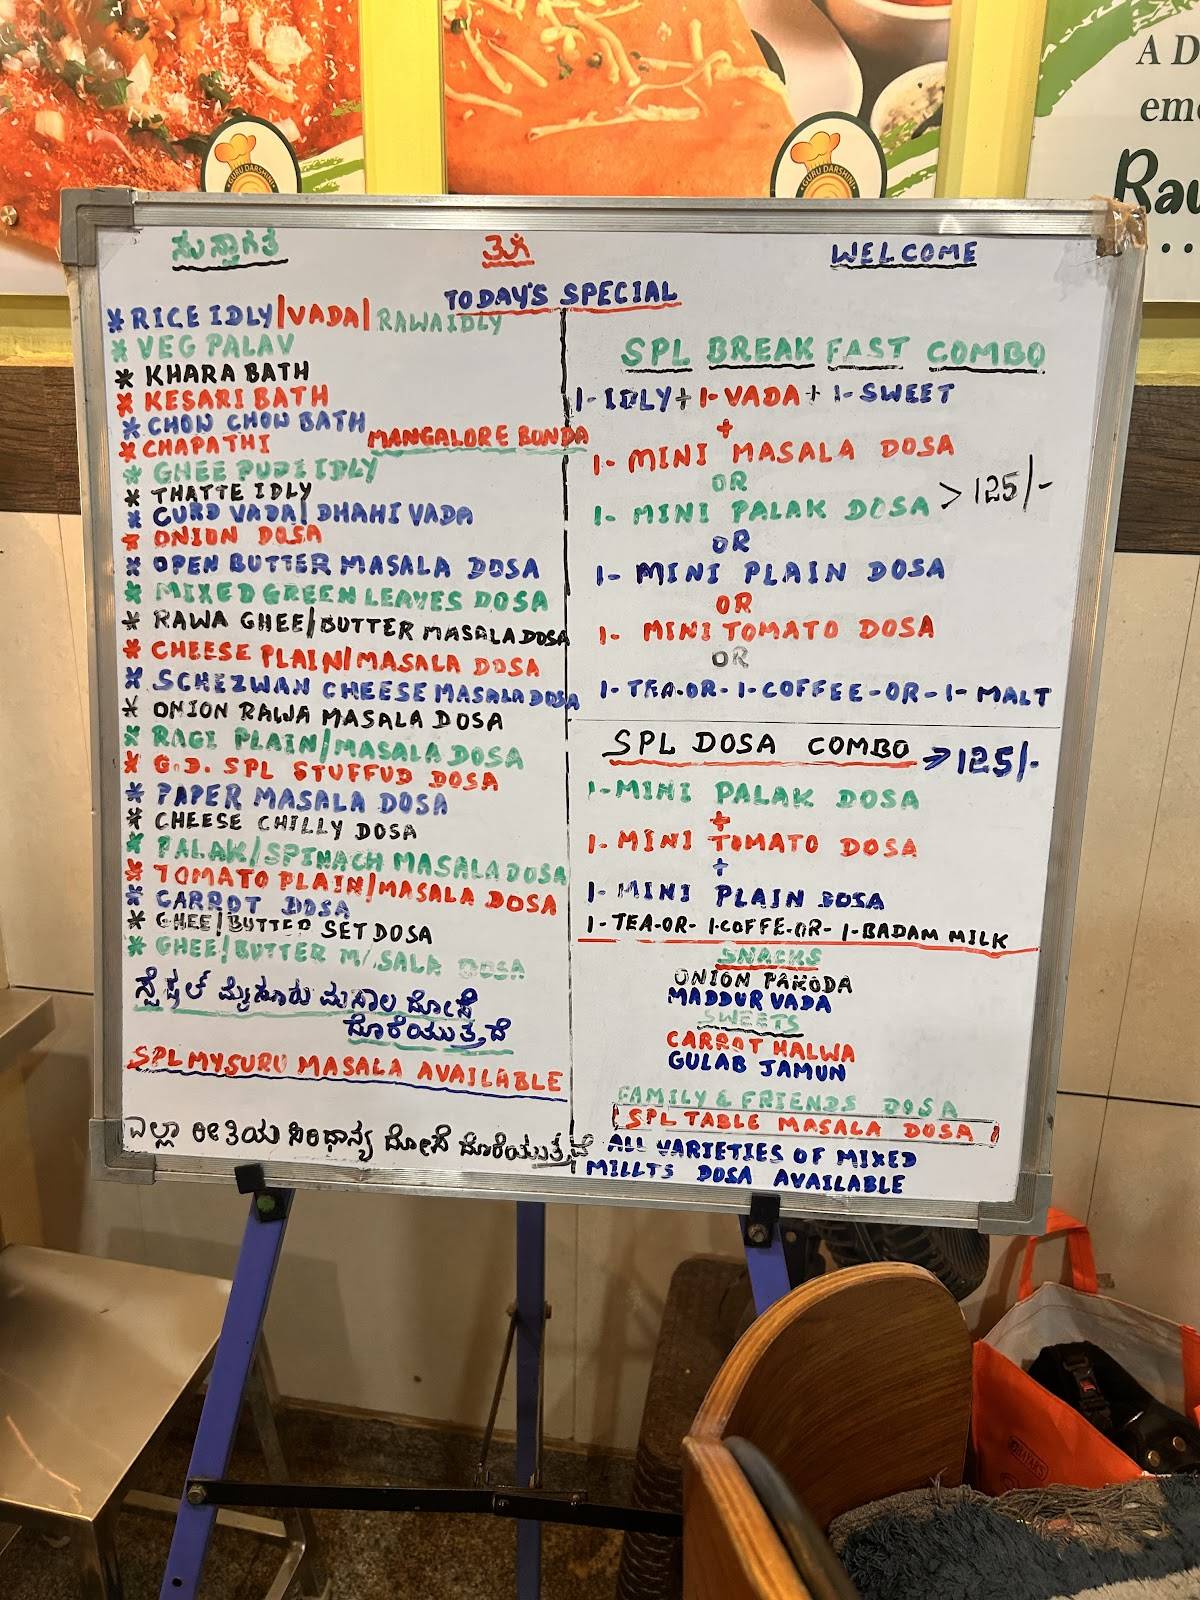 GURU DARSHINI
GURU DARSHINI
A D
eme
Rav
ಸುಸ್ವಾಗತ
WELCOME
TODAY'S SPECIAL
* RICE IDLY/VADA/RAWAIDLY
* VEG PALAV
* KHARA BATH
* KESARI BATH
* CHOW CHOW BATH
* CHAPATHI MANGALORE BONDA
* GHEE PUDI IDLY
* THATTE IDLY
* CURD VADA/DHAHI VADA
* ONION DOSA
* OPEN BUTTER MASALA DOSA
* MIXED GREEN LEAVES DOSA
* RAWA GHEE/BUTTER MASALA DOSA
* CHEESE PLAIN/MASALA DOSA
* SCHEZWAN CHEESE MASALA DOSA
* ONION RAWA MASALA DOSA
* RAGI PLAIN/MASALA DOSA
* G.D. SPL STUFFUD DOSA
* PAPER MASALA DOSA
* CHEESE CHILLY DOSA
* PALAK/SPINACH MASALA DOSA
* TOMATO PLAIN/MASALA DOSA
* CARROT DOSA
* GHEE/BUTTER SET DOSA
* GHEE/BUTTER MASALA DOSA
ಸ್ಪೆಷಲ್ ಮೈಸೂರು ಮಸಾಲ ದೋಸೆ
ದೊರೆಯುತ್ತದೆ
SPL MYSURU MASALA AVAILABLE
ಎಲ್ಲಾ ರೀತಿಯ ಸಿರಿಧಾನ್ಯ ದೋಸೆ ದೊರೆಯುತ್ತದೆ
SPL BREAK FAST COMBO
1-IDLY+1-VADA+1-SWEET
+
1- MINI MASALA DOSA
OR
1- MINI PALAK DOSA > 125/-
OR
1- MINI PLAIN DOSA
OR
1- MINI TOMATO DOSA
OR
1-TEA-OR-1-COFFEE-OR-1-MALT
SPL DOSA COMBO → 125/-
1-MINI PALAK DOSA
+
1-MINI TOMATO DOSA
+
1-MINI PLAIN DOSA
1-TEA-OR-1-COFFE-OR-1-BADAM MILK
SNACKS
ONION PAKODA
MADDUR VADA
SWEETS
CARROT HALWA
GULAB JAMUN
FAMILY & FRIENDS DOSA
SPL TABLE MASALA DOSA
ALL VARIETIES OF MIXED
MILLTS DOSA AVAILABLE